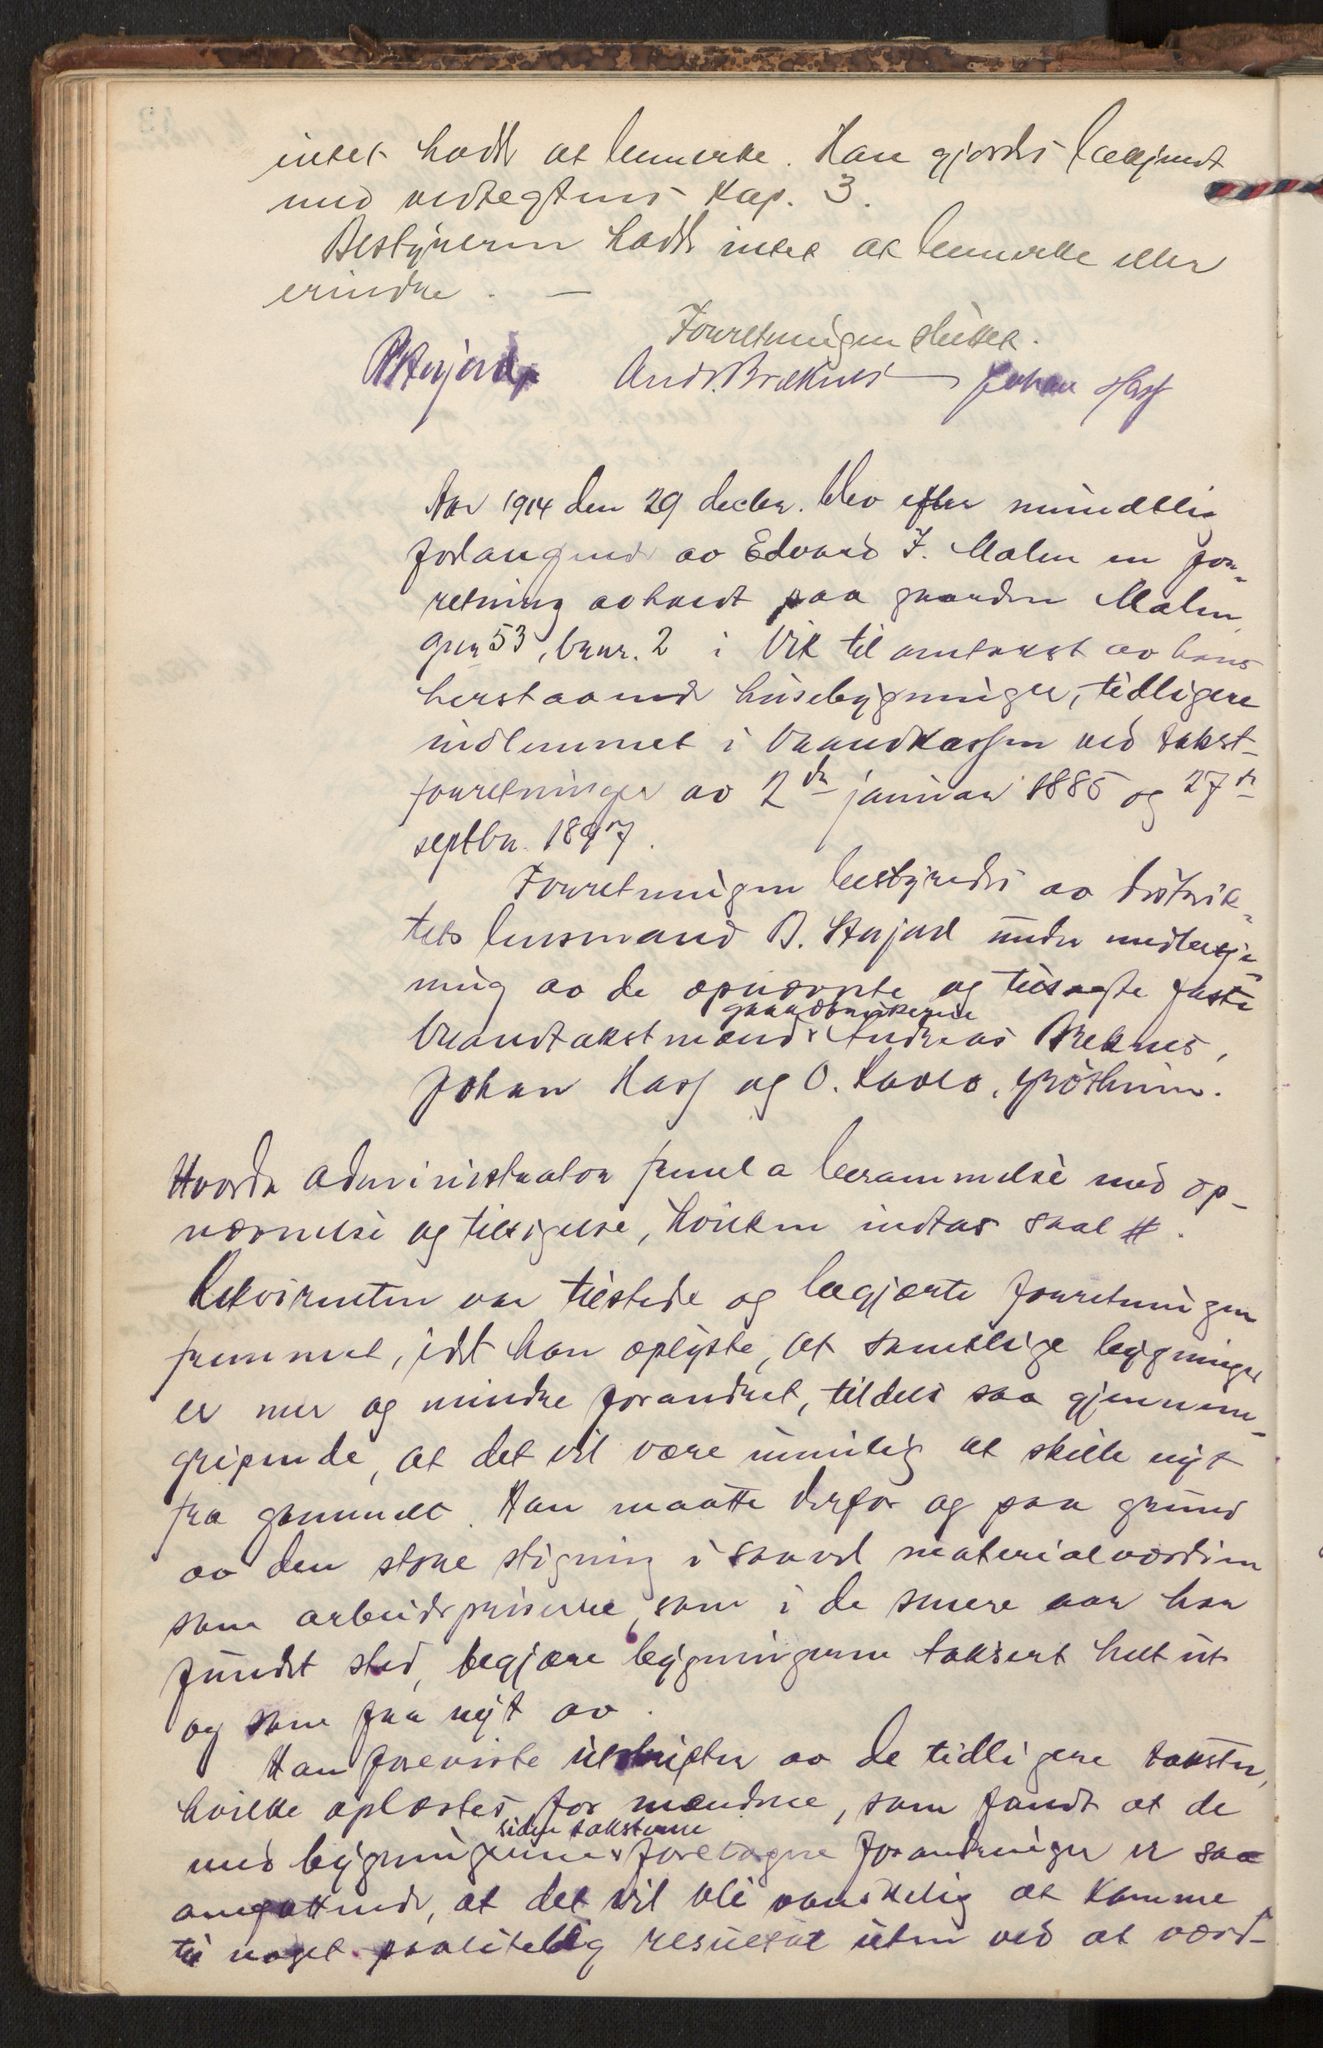 intet hadde at bemerke. Han gjordes bekjendt
med vedtegtens kap. 3.
Bestyreren hadde intet at bemerke eller
erindre. —
Forretningen sluttet.
Andr. Breknes Johan Hass
Aar 1914 den 29 decbr. blev efter mundtlig
forlangende av Edvard J. Malen en for-
retning avholdt paa gaarden Malen,
gnr 53, bnr. 2 i Vik til omtakst av hans
herstaaende husebygninger, tidligere
indlemmet i Brandkassen ved takst-
forretninger av 2den januar 1885 og 27de
septbr. 1897.
Forretningen bestyredes av distrik-
tets lensmand B. Herjord under medbetje-
ning av de opnævnte og tilsagte faste
gaardbrukerne
brandtakstmænd x Andreas Breknes,
Johan Hass og O.
Hvorda administrator fremla berammelse med op-
nævnelse og tilsigelse, hvilken indtas saal #.
Rekvirenten var tilstede og begjærte forretningen
fremmet, idet han oplyste, at samtlige bygninger
er mer og mindre forandret, tildels saa gjennem-
gripende, at det vil være umulig at skille nyt
fra gammelt. Han maatte derfor og paa grund
av den store stigning i saavel materialværdien
som arbeidspriserne, som i de senere aar har
fundet sted, begjære bygningerne taksert helt ut
og som fra nyt av.
Han foreviste utskrifter av de tidligere takster,
hvilke oplæstes for mændene, som fandt at de
siden taksterne
med bygningerne x foretagne forandringer er saa
omfattende, at det vil bli vanskelig at komme
til noget paalitelig resultat uten ved at værd-